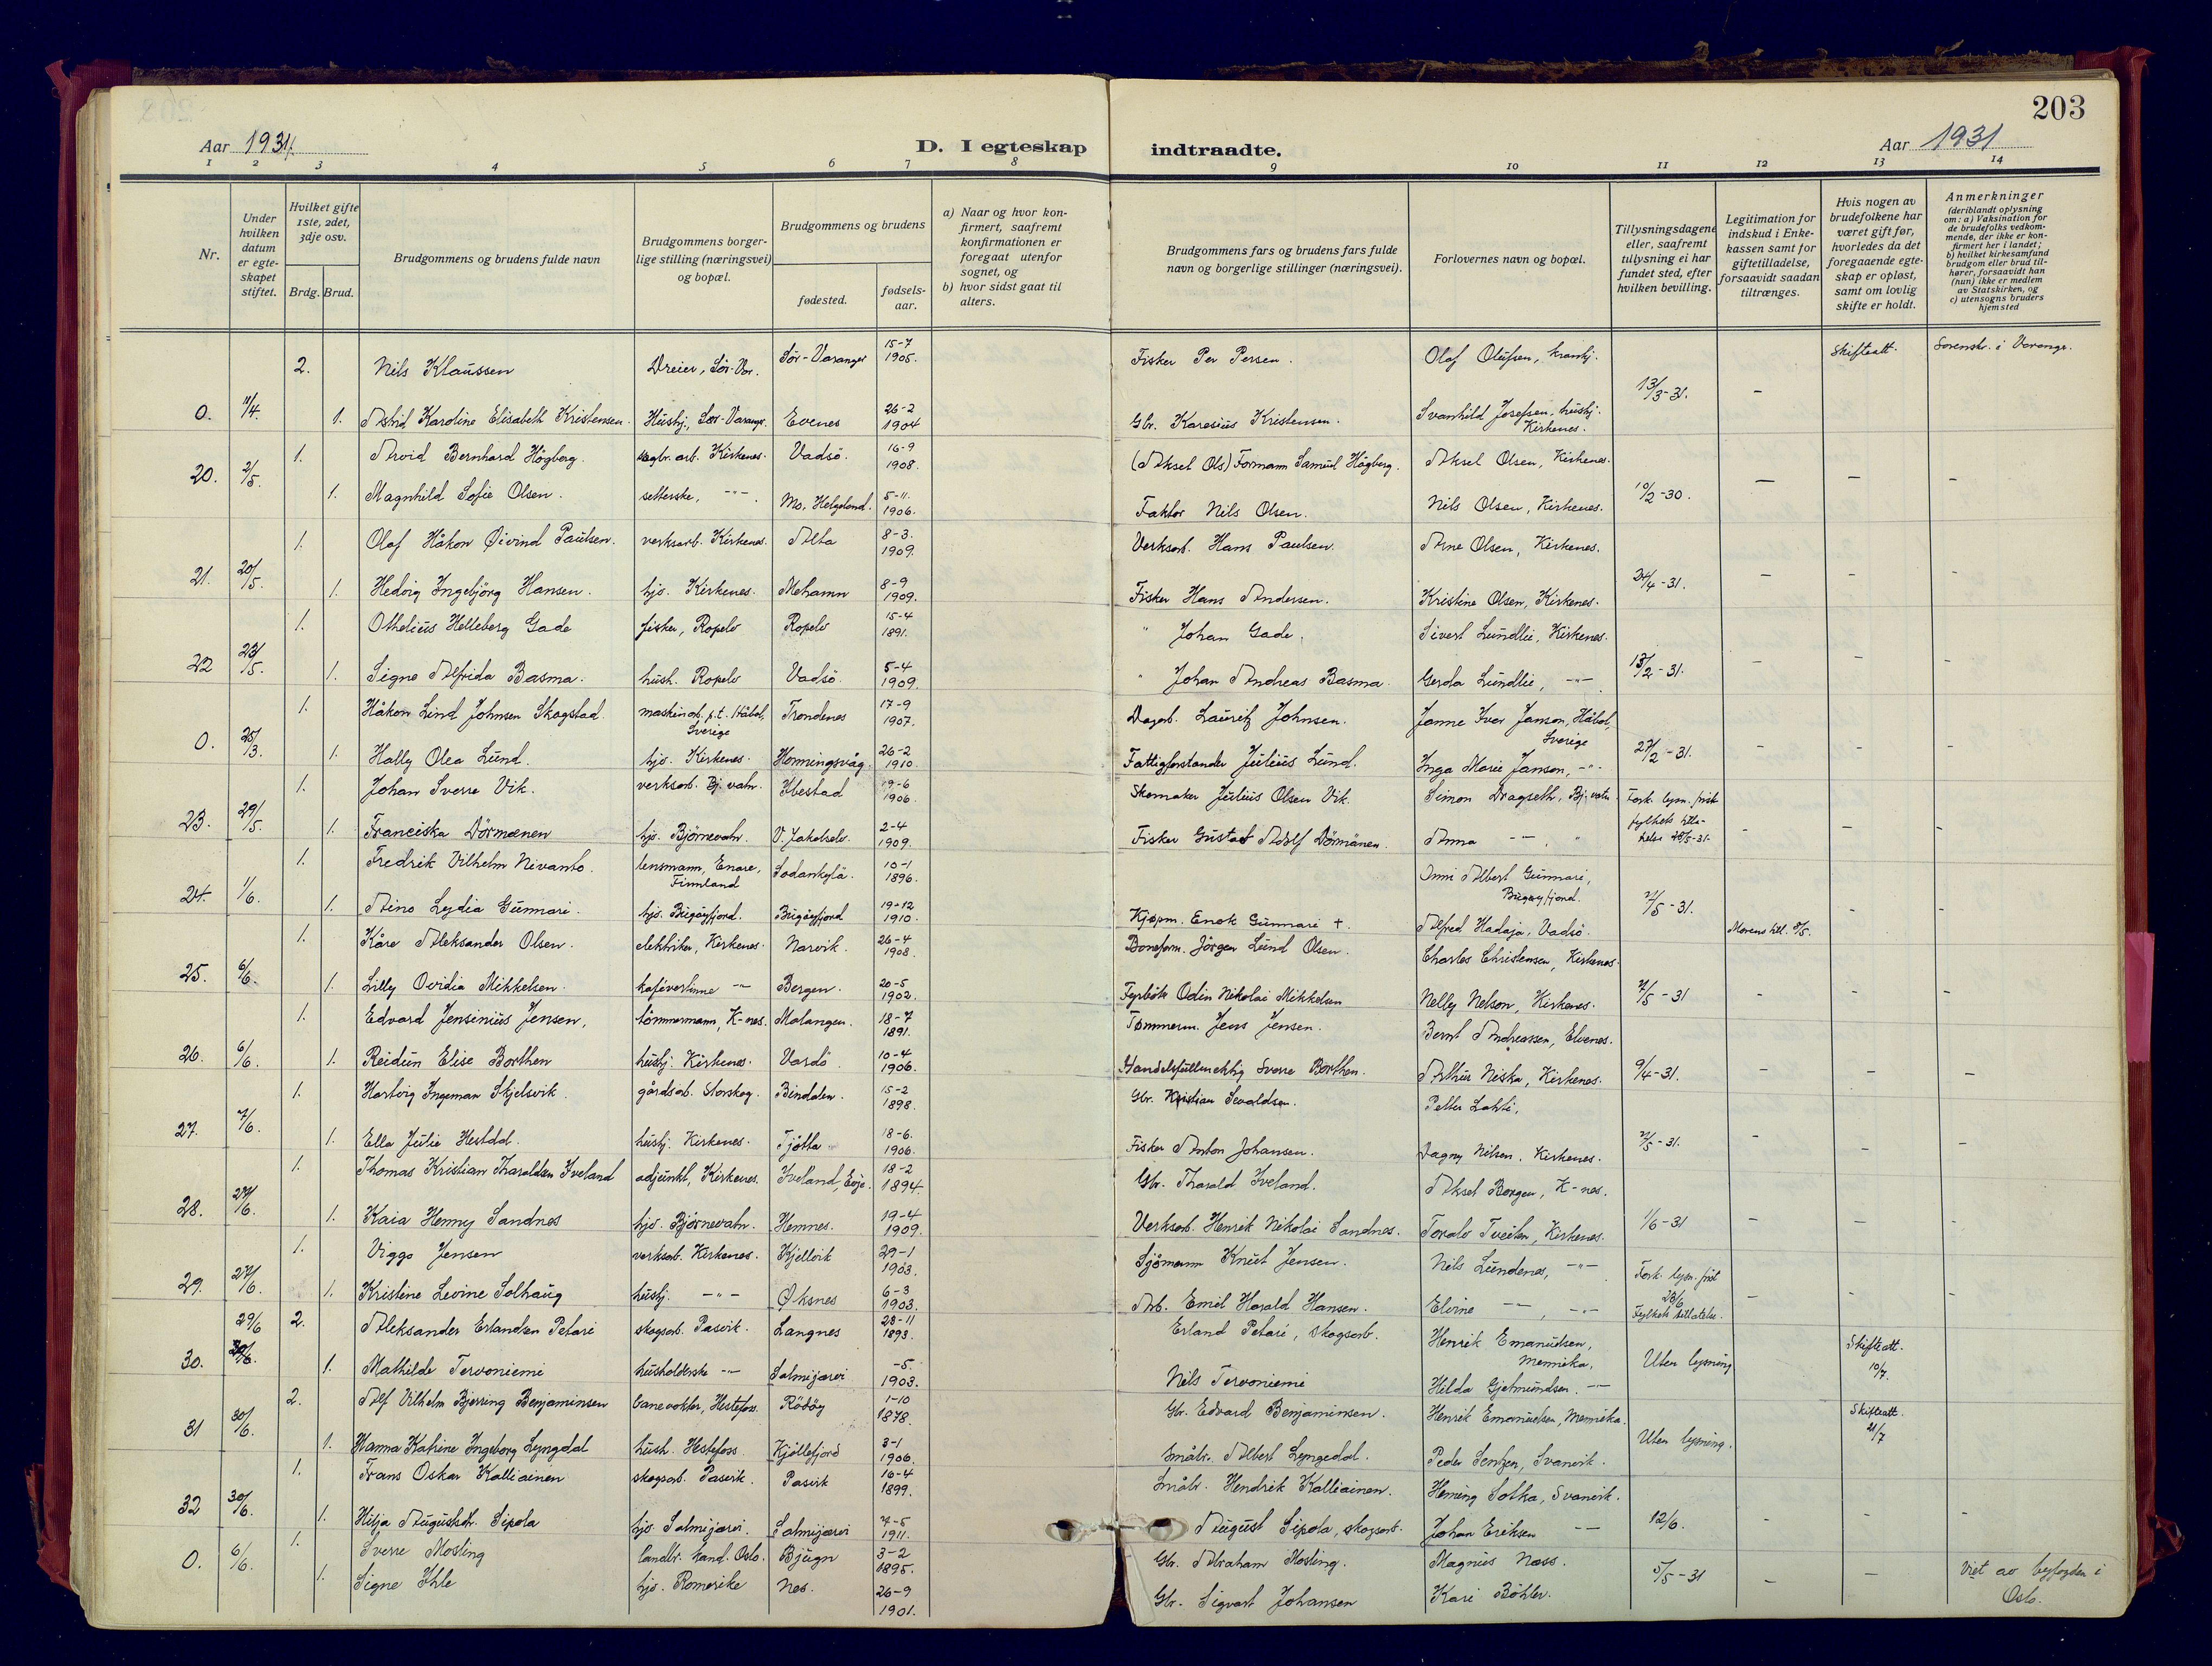 203
Aar 1931.
D. I egteskap indtraadte.
Aar 1931
1 2 3 4 5 6 7 8 9 10 11 12 13 14
Nr.
Under hvilken datum er egteskapet stiftet.
Hvilket gifte 1ste, 2det, 3dje osv.
Brdg. Brud.
Brudgommens og brudens fulde navn
Brudgommens borgerlige stilling (næringsvei) og bopæl.
Brudgommens og brudens
fødested.
fødselsaar.
a) Naar og hvor konfirmert, saafremt konfirmationen er foregaat utenfor sognet, og
b) hvor sidst gaat til alters.
Brudgommens fars og brudens fars fulde navn og borgerlige stillinger (næringsvei).
Forlovernes navn og bopæl.
Tillysningsdagene eller, saafremt tillysning ei har fundet sted, efter hvilken bevilling.
Legitimation for indskud i Enkekassen samt for giftetilladelse, forsaavidt saadan tiltrænges.
Hvis nogen av brudefolkene har været gift før, hvorledes da det foregaaende egteskap er opløst, samt om lovlig skifte er holdt.
Anmerkninger (deriblandt oplysning om: a) Vaksination for de brudefolks vedkommende, der ikke er konfirmert her i landet; b) hvilket kirkesamfund brudgom eller brud tilhører, forsaavidt han (hun) ikke er medlem av Statskirken, og c) utensogns bruders hjemsted
2. Nils Klaussen Dreier, Sör-Var. Sör-Varanger 15-7 1905. Fisker Per Persen. Olaf Olufsen, Skifteatt. Sorenskr. i Varangr.
0. 11/4. 1. Astrid Karoline Elisabeth Kristensen. Hushj., Sør-Varangr. Evenes 26-2 1904 Gbr. Karesius Kristensen. Svanhild Josefsen, hushj. Kirkenes. 13/3-31. -
1. Arvid Bernhard Högberg. sagbr. arb. Kirkenes. Vadsö. 16-9 1908. (Aksel Ols) Formann Samuel Högberg. Aksel Olsen, Kirkenes.
20. 2/5. 1. Magnhild Sofie Olsen. setterske, -"-. Mo, Helgeland. 5-11. 1906. Faktor Nils Olsen. Nils Olsen, Kirkenes. 10/2-30. - - -
1. Olaf Håkon Øivind Paulsen. verksarb. Kirkenes. Alta 8-3. 1909. Verksarb. Hans Paulsen. Arne Olsen, Kirkenes.
21. 20/5. 1. Hedvig Ingebjörg Hansen. hjv. Kirkenes. Mehamn 8-9 1909. Fisker Hans Andersen. Kristine Olsen, Kirkenes. 24/4-31. - - -
1. Othelius Helleberg Gade fisker, Ropelv Ropelv 15-4 1891. " Johan Gade. Sivert Lundlie, Kirkenes.
22 23/5. 1. Signe Alfrida Basma. hush. Ropelv Vadsö. 5-4 1909. " Johan Andreas Basma. Gerda Lundlie, -"-. 13/2-31. - - -
1. Håkon Lind Johnsen Skogstad. maskinarb. p.t. Håbol, Sverige Trondenes 17-9 1907. Dagarb. Lauritz Johnsen. Janne Ivar Janson, Håbol, Sverige
0. 25/3. 1. Hally Olea Lund. hjv. Kirkenes. Honningsvåg. 26-2 1910. Fattigforstander Julius Lund. Inga Marie Janson, -"- 27/2-31. - - -
1. Johan Sverre Vik. verksarb. Bj. vatn. Ibestad 19-6 1906. Skomaker Julius Olsen Vik. Simon Dragseth, Bj. vatn. Fork. lysn. frist
23. 29/5. 1. Franciska Dörmænen hjv. Björnevatn. V. Jakobselv. 2-4 1909. Fisker Gustad Adolf Dörmänen. Anna -"- . " fylkets tilla- telse 28/5-31. - - -
1. Fredrik Vilhelm Nivanto. lensmann, Enare, Finnland Sodankylä. 10-1 1896. Onni Albert Gunnari, Bugøyfjord.
24. 1/6. 1. Aino Lydia Gunnari. hjv. Bugöyfjord. Bugöyfjord 19-12 1910. Kjøpm. Enok Gunnari +. Alfred Hadaja, Vadsö. /5-31. - -
1. Kåre Aleksander Olsen. elektriker, Kirkenes. Narvik. 26-4 1908. Baneform. Jörgen Lund Olsen. Charles Christensen, Kirkenes.
25. 6/6. 1. Lilly Ovidia Mikkelsen. kafévertinne -"- Bergen. 20-5 1902. Fyrbök Odin Nikolai Mikkelsen Nelly Nelson, Kirkenes. /5-31 - - -
1. Edvard Jensinius Jensen, tömmermann, K-nes. Malangen. 18-7 1891. Tømmerm. Jens Jensen. Bernt Andreassen, Elvenes.
26. 6/6. 1. Reidun Elise Borthen hushj. Kirkenes. Vardö. 10-4 1906. Handelsfullmektig Sverre Borthen. Arthur Niska, Kirkenes. 9/4-31. - - -
1. Hartvig Ingeman Skjelsvik. gårdsarb. Storskog. Bindalen. 15-2 1898. Gbr. Kristian Sevaldsen. Petter Lahti,
27. 7/6. 1. Ella Julie Hestdal. hushj. Kirkenes. Tjøtta. 18-6. 1906. Fisker Anton Johansen. Dagny Nilsen. Kirkenes. /5-31. - - -
1. Thomas Kristian Tharaldsen Iveland adjunkt, Kirkenes. Iveland, Evje. 18-2 1894. Gbr. Tharald Iveland. Aksel Borgen, K-nes.
28. 27/6. 1. Kaia Henny Sandnes hjv. Bjørnevatn. Hemnes. 19-4 1909. Verksarb. Henrik Nikolai Sandnes. Toralv Tveiten, Kirkenes. 1/6-31 - - -
1. Viggo Jensen verksarb. Kirkenes. Kjelvik 29-1 1903. Sjömann Knut Jensen. Nils Lundenes, -"-. Fork. lysn. frist
29. 27/6. 1. Kristine Levine Solhaug hushj. -"- Øksnes 6-3 1903. Arb. Emil Harald Hansen. Elvine -"-, -"- 23/6 Fylkets tillatelse. - - -
29/6 2. Aleksander Erlandsen Petari skogsarb. Pasvik. Langnes 23-11 1893. Erland Petari, skogsarb. Henrik Emanuelsen, Mennika, Skifteatt. 10/7.
30. 30/6. 1. Mathilde Tervoniemi husholderske -"- Salmijærvi -5. 1903. Nils Tervoniemi Hilda Gjetmundsen. -"- Uten lysning
2. Alf Vilhelm Bjerring Benjaminsen banevokter, Hestefoss. Röböy 1-10 1878. Gbr. Edvard Benjaminsen. Henrik Emanuelsen, Mennika. Skifteatt. 21/7
31 30/6. 1. Hanna Katrine Ingeborg Lyngdal hush. Hestefoss Kjöllefjord 3-1 1906. Småbr. Albert Lyngedal. Peder Sentzen, Svanvik. Uten lysning.
1. Frans Oskar Kalliainen skogsarb. Pasvik. Pasvik 16-4 1899. Småbr. Hendrik Kalliainen. Heming Sotka, Svanvik.
32 30/6. 1. Hilja Augustdr. Sipola hjv. Salmijarvi. Salmijarvi 7-5 1911. August Sipola, skogsarb. Johan Eriksen -"- 12/6. - - -
1. Sverre Mosling landbr. kand. Oslo. Bjugn 3-2 1895. Gbr. Abraham Mosling. Magnus Næss.
0. 6/6. 1. Signe Ihle hjv. Romerike Nes. 26-9 1901. Gbr. Sigvart Johansen Kari Böhler. 5/5-31 - - Viet av byfogden i Oslo.